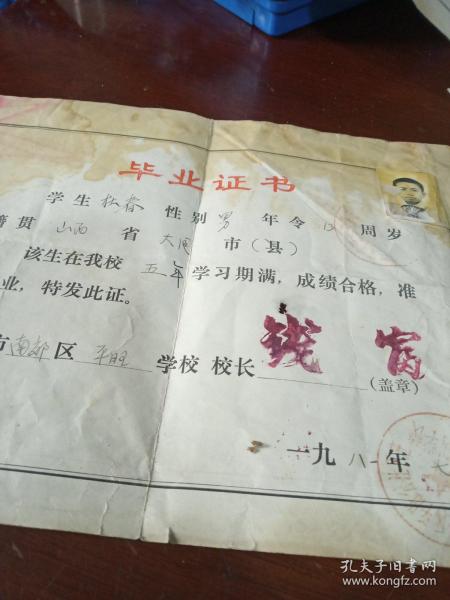 毕业证书
学生 性别 男 年令 周岁
籍贯 山西 省 大同 市(县)
该生在我校 五年 学习期满,成绩合格,准
业,特发此证。
市 南郊 区 平旺 学校 校长
(盖章)
一九八一年
孔夫子旧书网
www.kongfz.com